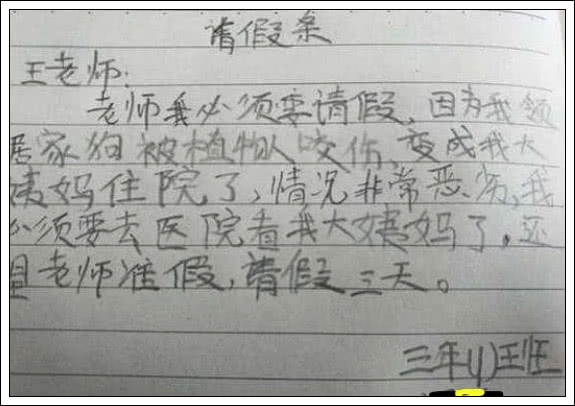 请假条
王老师:
老师我必须要请假,因为我领
居家狗被植物人咬伤,变成我大
姨妈住院了,情况非常恶劣,我
必须要去医院看我大姨妈了。还
望老师准假,请假三天。
三年(1)班